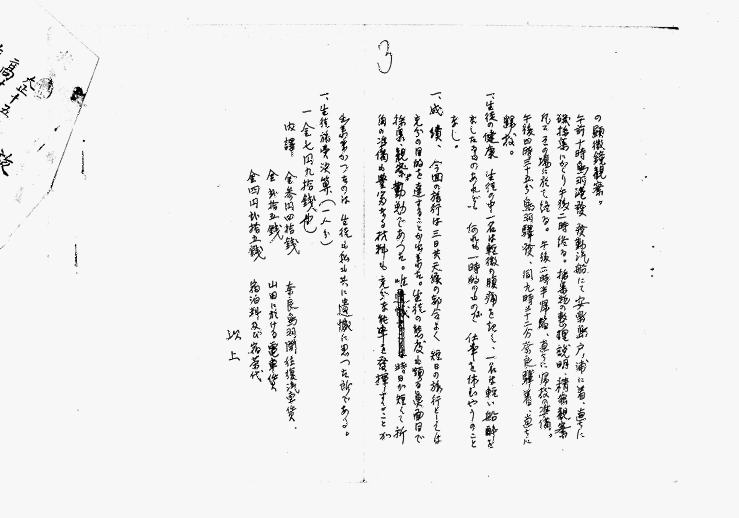 3
の顕微鏡観察。
午前十時鳥羽港発 発動汽船にて安楽島戸ノ浦に着、直ちに
磯採集にかゝり午後二時終る。採集物の整理説明・精密観察
をその場に於て終る。午後二時半帰途、直ちに帰校の準備。
午後四時三十五分鳥羽驛発、同九時五十二分奈良驛着、直ちに
解散。
一、生徒の健康 生徒の中一名は軽微の腹痛を起し、一名は軽い船酔を
ましたものあれども 何れも一時的のもので 仕事を休むやうのこと
なし。
一、成績、今回の旅行は三日共天候の都合よく 短日の旅行としては
充分の目的を達することが出来た。生徒の態度も頗る真面目で
採集、観察、勤勉であつた。唯 時日が短くて折
角の準備も豊富なる材料も充分な能率を発揮することが
出来なかつたのは 生徒も私も共に遺憾に思つた所である。
一、生徒旅費決算(一人分)
一金七円九拾銭也
内譯 金参円四拾銭 奈良鳥羽間往復汽車賃、
金弐拾五銭 山田に於ける電車賃
金四円弐拾五銭 宿泊料及び宿茶代
以上
大正十五
高